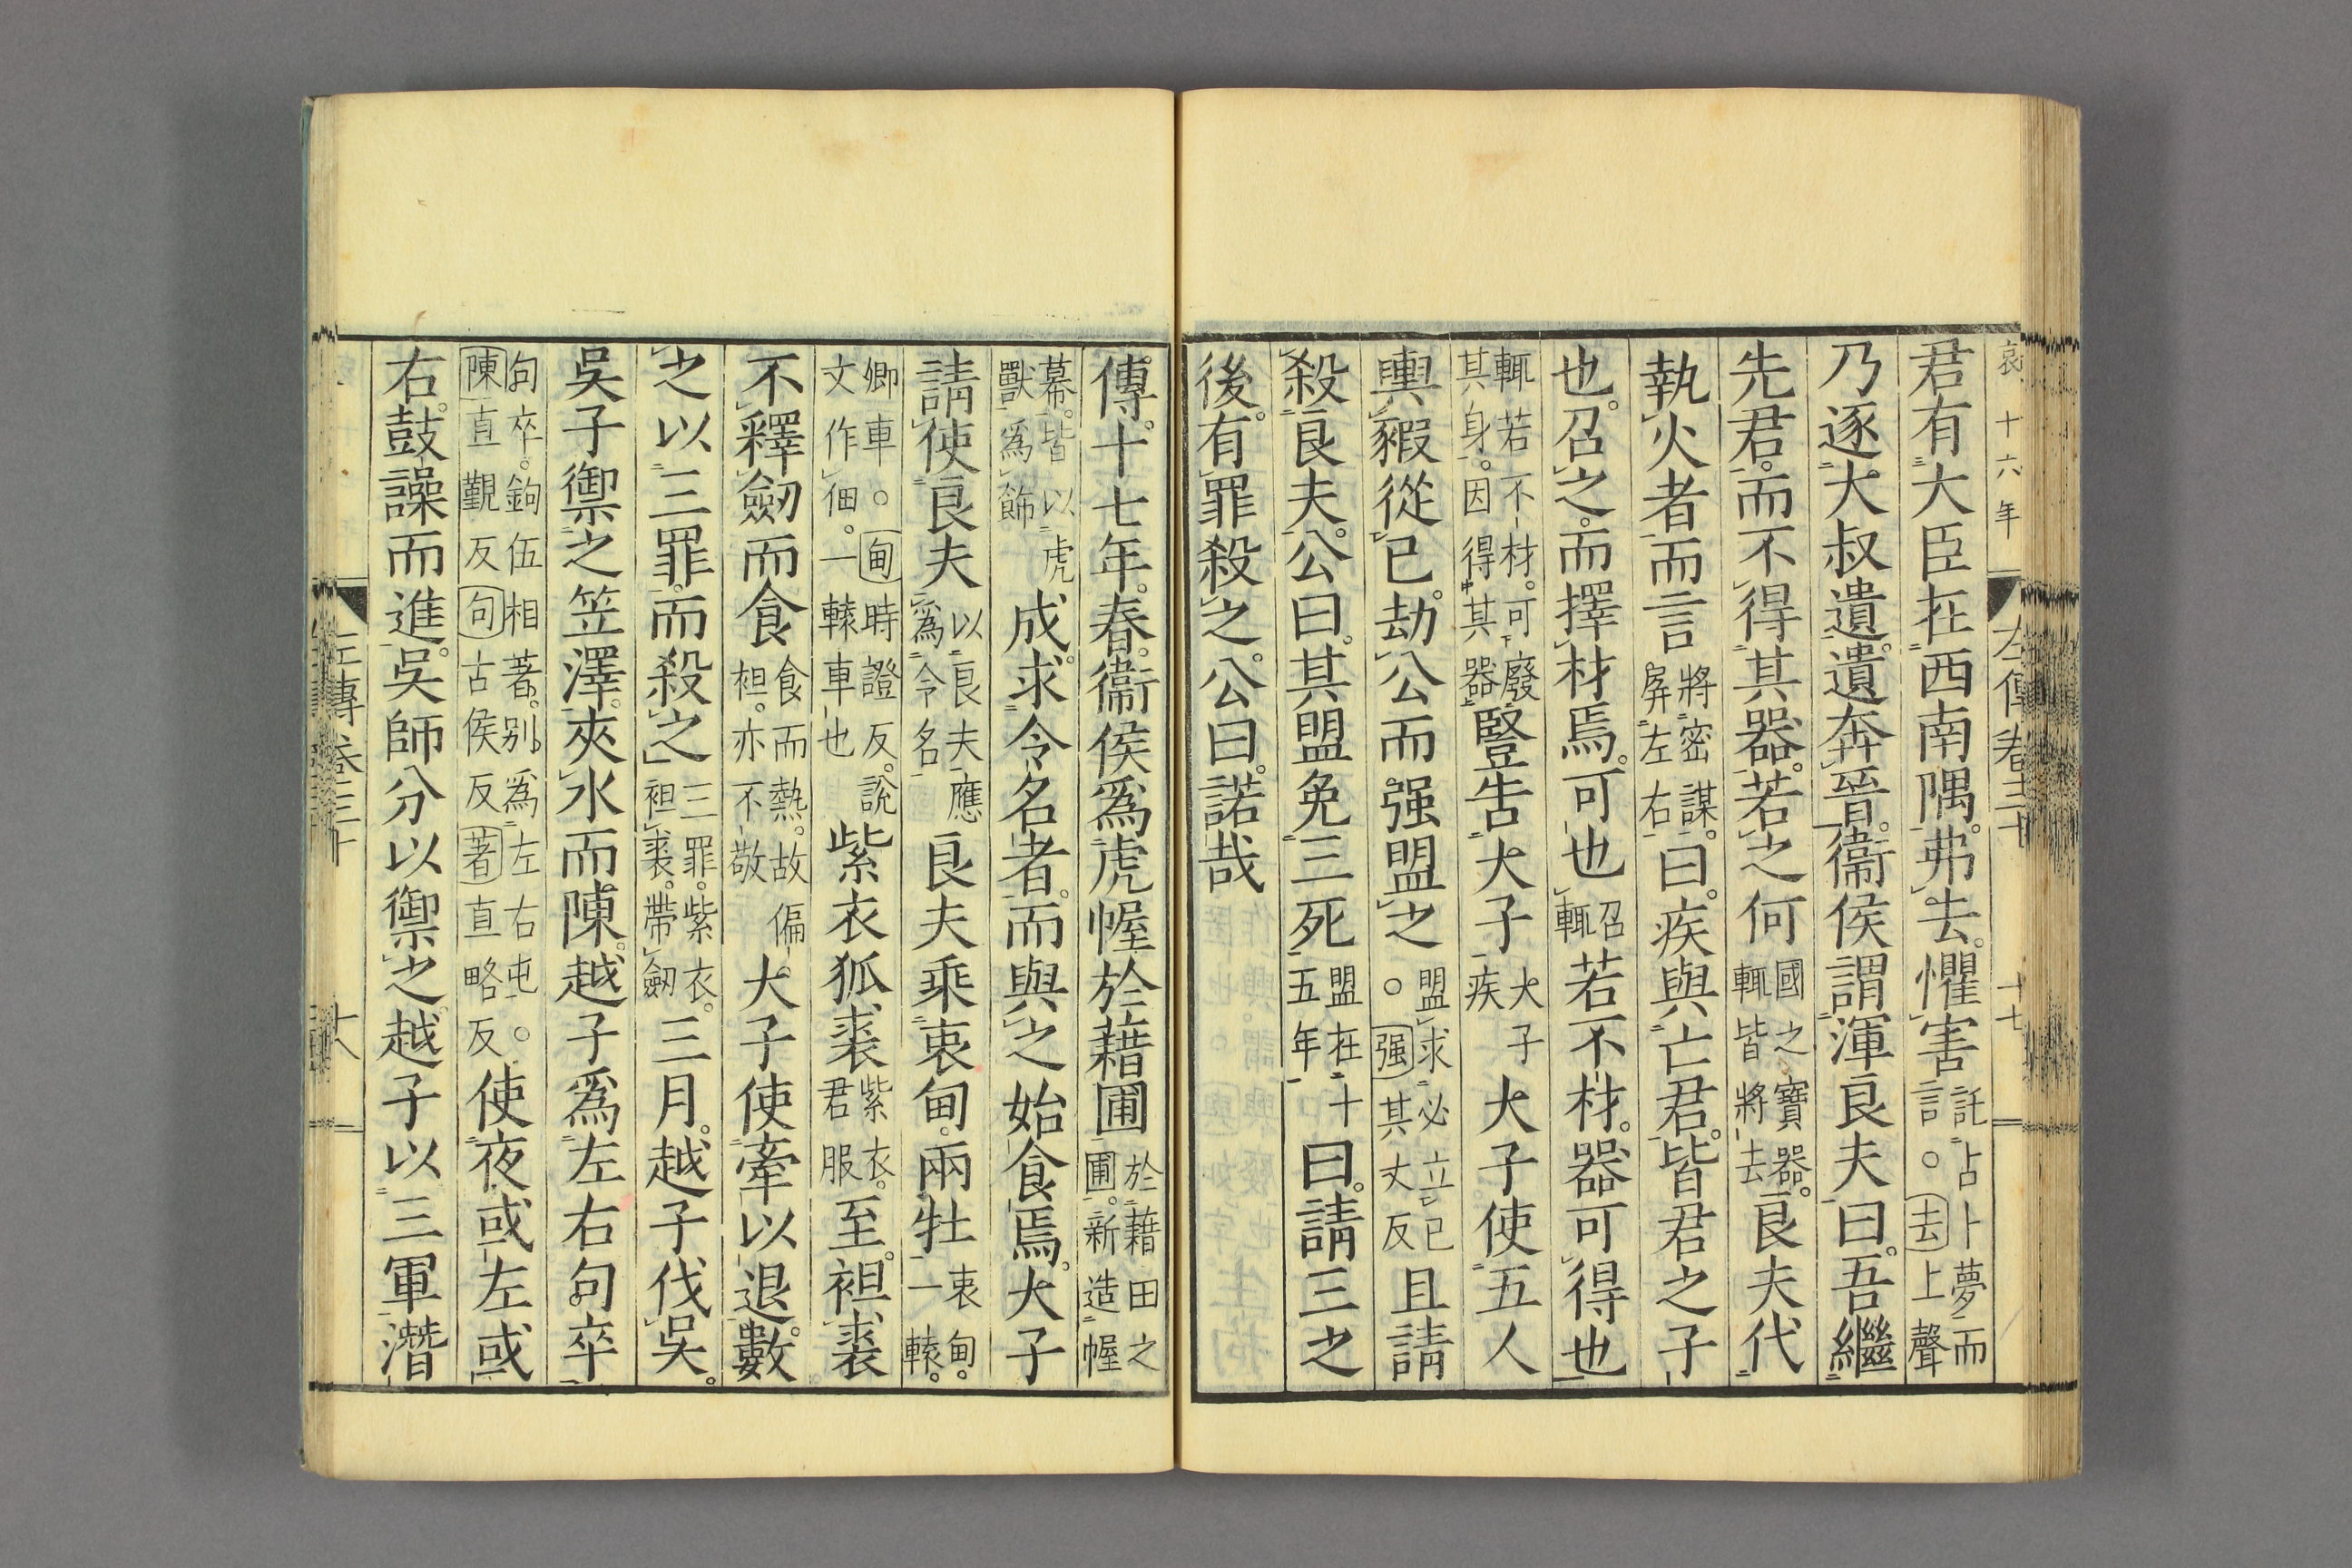 哀十六年 左傳卷三十 十七
君有大臣在西南隅。弗去。懼害託占卜夢而言。○去上聲
乃逐大叔遺。遺奔晉。衞侯謂渾良夫曰。吾繼
先君。而不得其器。若之何國之寶器。輒皆將去。良夫代
執火者而言將密謀。屏左右曰。疾與亡君。皆君之子
也。召之。而擇材焉。可也召輒若不材。器可得也
輒若不材。可廢其身。因得其器豎告大子大子疾大子使五人
輿豭從已。劫公而强盟之盟求必立已。○强其丈反且請
殺良夫。公曰。其盟免三死盟在十五年曰。請三之
後。有罪殺之。公曰。諾哉
傳。十七年。春。衞侯爲虎幄於藉圃於藉田之圃。新造幄
幕。皆以虎獸爲飾成。求令名者。而與之始食焉。大子
請使良夫以良夫應爲令名良夫乘衷甸。兩牡衷甸。一轅。
卿車。○甸時證反。說文作佃。一轅車也紫衣狐裘紫衣。君服至。袒裘
不釋劒而食食而熱。故偏袒。亦不敬大子使牽以退。數
之以三罪。而殺之三罪。紫衣。袒裘。帶劒三月。越子伐吳。
吳子禦之笠澤。夾水而陳。越子爲左右句卒
句卒。鉤伍相著。別爲左右屯。○陳直觀反句古侯反著直略反使夜或左或
右。鼓譟而進。吳師分以禦之。越子以三軍潛
左傳卷三十 十八